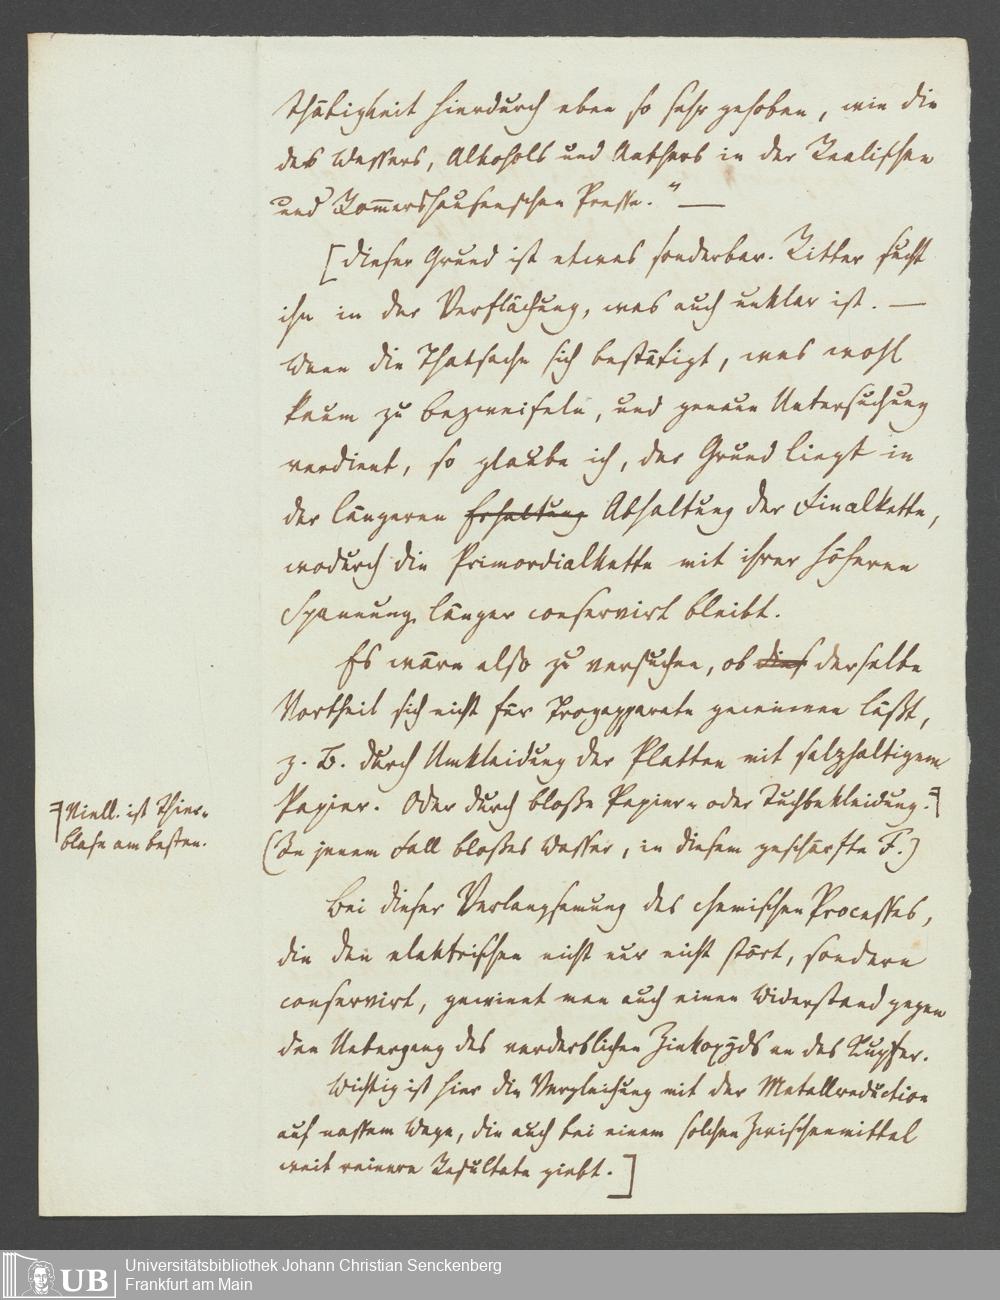 thätigkeit hierdurch eben so sehr gehoben, wie die
des Wassers, Alkohols und Aethers in der Realischen
und Rom̅ershausenschen Presse." —
[Dieser Grund ist etwas sonderbar. Ritter sucht
ihn in der Verflächung, was auch unklar ist. —
Wenn die Thatsache sich bestätigt, was wohl
kaum zu bezweifeln, und genaue Untersuchung
verdient, so glaube ich, der Grund liegt in
der längeren Erhaltung Abhaltung der Finalkette,
wodurch die Primordialkette mit ihrer höheren
Spannung länger conservirt bleibt.
Es wäre also zu versuchen, ob dies derselbe
Vortheil sich nicht für Trogapparate gewinnen läßt,
z. B. durch Umkleidung der Platten mit salzhaltigem
Papier. Oder durch bloße Papier- oder Tuchbekleidung.
Viell. ist Thier-
blase am besten.
(In jenem Fall bloßes Wasser, in diesem geschärfte F.)
Bei dieser Verlangsamung des chemischen Processes,
die den elektrischen nicht nur nicht stört, sondern
conservirt, gewinnt man auch einen Widerstand gegen
den Uebergang des verderblichen Zinkoxyds an das Kupfer.
Wichtig ist hier die Vergleichung mit der Metallreduction
auf nassem Wege, die auch bei einem solchen Zwischenmittel
weit reinere Resultate giebt.]
Universitätsbibliothek Johann Christian Senckenberg
Frankfurt am Main
UB